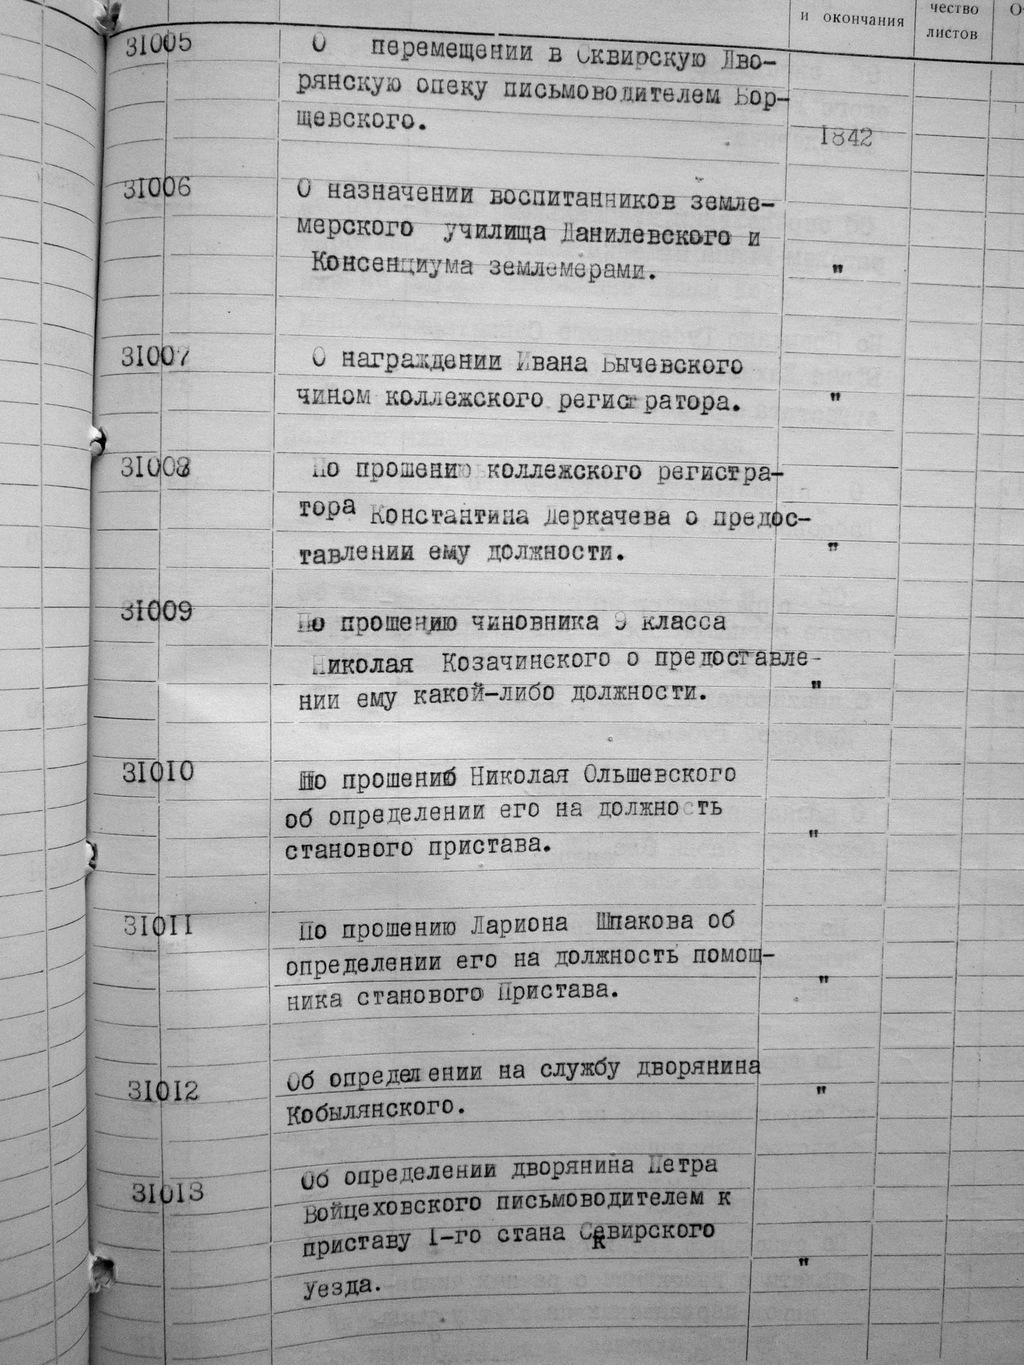 и окончания
чество
листов
О
31005
О перемещении в Сквирскую Дво-
рянскую опеку письмоводителем Бор-
щевского.
1842
31006
О назначении воспитанников земле-
мерского училища Данилевского и
Консенциума землемерами.
"
31007
О награждении Ивана Бычевского
чином коллежского регистратора.
"
31008
По прошению коллежского регистра-
тора Константина Деркачева о предос-
тавлении ему должности.
"
31009
По прошению чиновника 9 класса
Николая Козачинского о предоставле-
нии ему какой-либо должности.
"
31010
По прошению Николая Ольшевского
об определении его на должность
станового пристава.
"
31011
По прошению Лариона Шпакова об
определении его на должность помощ-
ника станового Пристава.
"
31012
Об определении на службу дворянина
Кобылянского.
"
31013
Об определении дворянина Петра
Войцеховского письмоводителем к
приставу 1-го стана Сквирского
уезда.
"